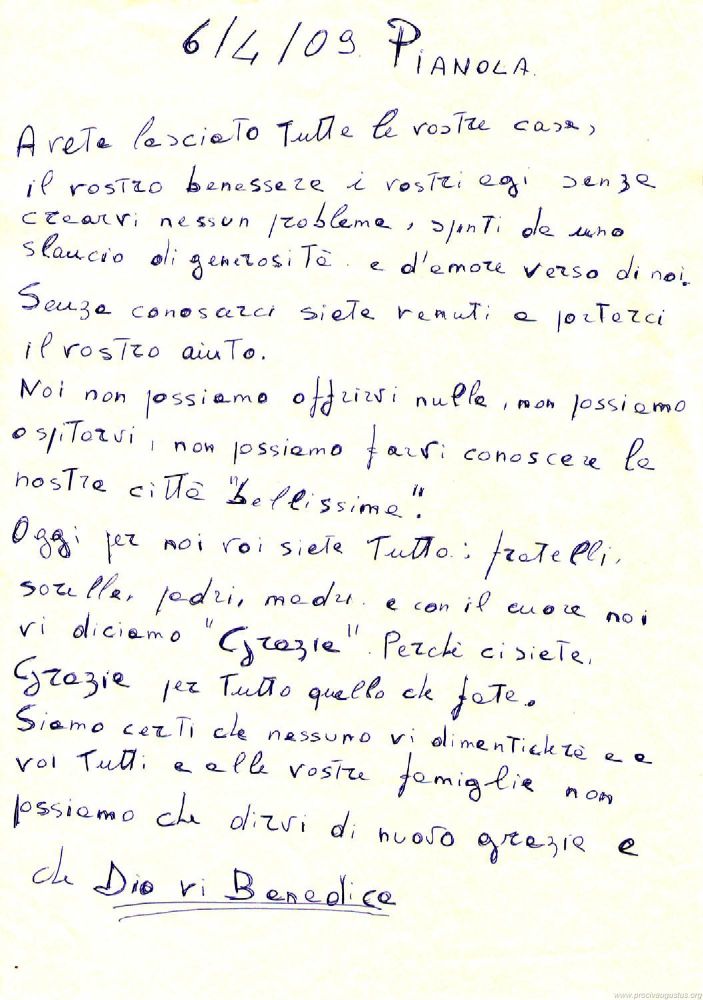 6/4/09. PIANOLA.
Avete lasciato tutte le vostre case,
il vostro benessere i vostri agi senza
crearvi nessun problema, spinti da uno
slancio di generosità e d'amore verso di noi.
Senza conoscerci siete venuti a portarci
il vostro aiuto.
Noi non possiamo offrirvi nulla, non possiamo
ospitarvi, non possiamo farvi conoscere la
nostra città "bellissima".
Oggi per noi voi siete tutto: fratelli,
sorelle, padri, madri e con il cuore noi
vi diciamo "Grazie". Perchè ci siete,
Grazie per tutto quello che fate.
Siamo certi che nessuno vi dimenticherà e a
voi tutti e alle vostre famiglie non
possiamo che dirvi di nuovo grazie e
che Dio vi Benedica
www.procivaugustus.org